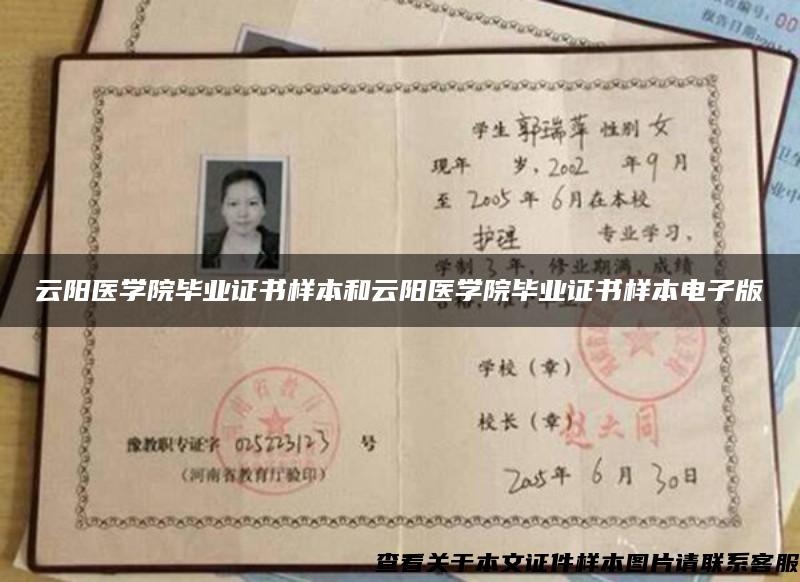 告编号：00
报告日期：201
卫生
业中
学生 郭瑞萍 性别 女
现年　岁，2002 年 9 月
至 2005 年 6 月在本校
护理 专业学习，
学制 3 年，修业期满，成绩
云阳医学院毕业证书样本和云阳医学院毕业证书样本电子版
学校（章）
校长（章） 赵大同
豫教职专证字 025223123 号
（河南省教育厅验印）
2005 年 6 月 30 日
河南省教育厅
查看关于本文证件样本图片请联系客服